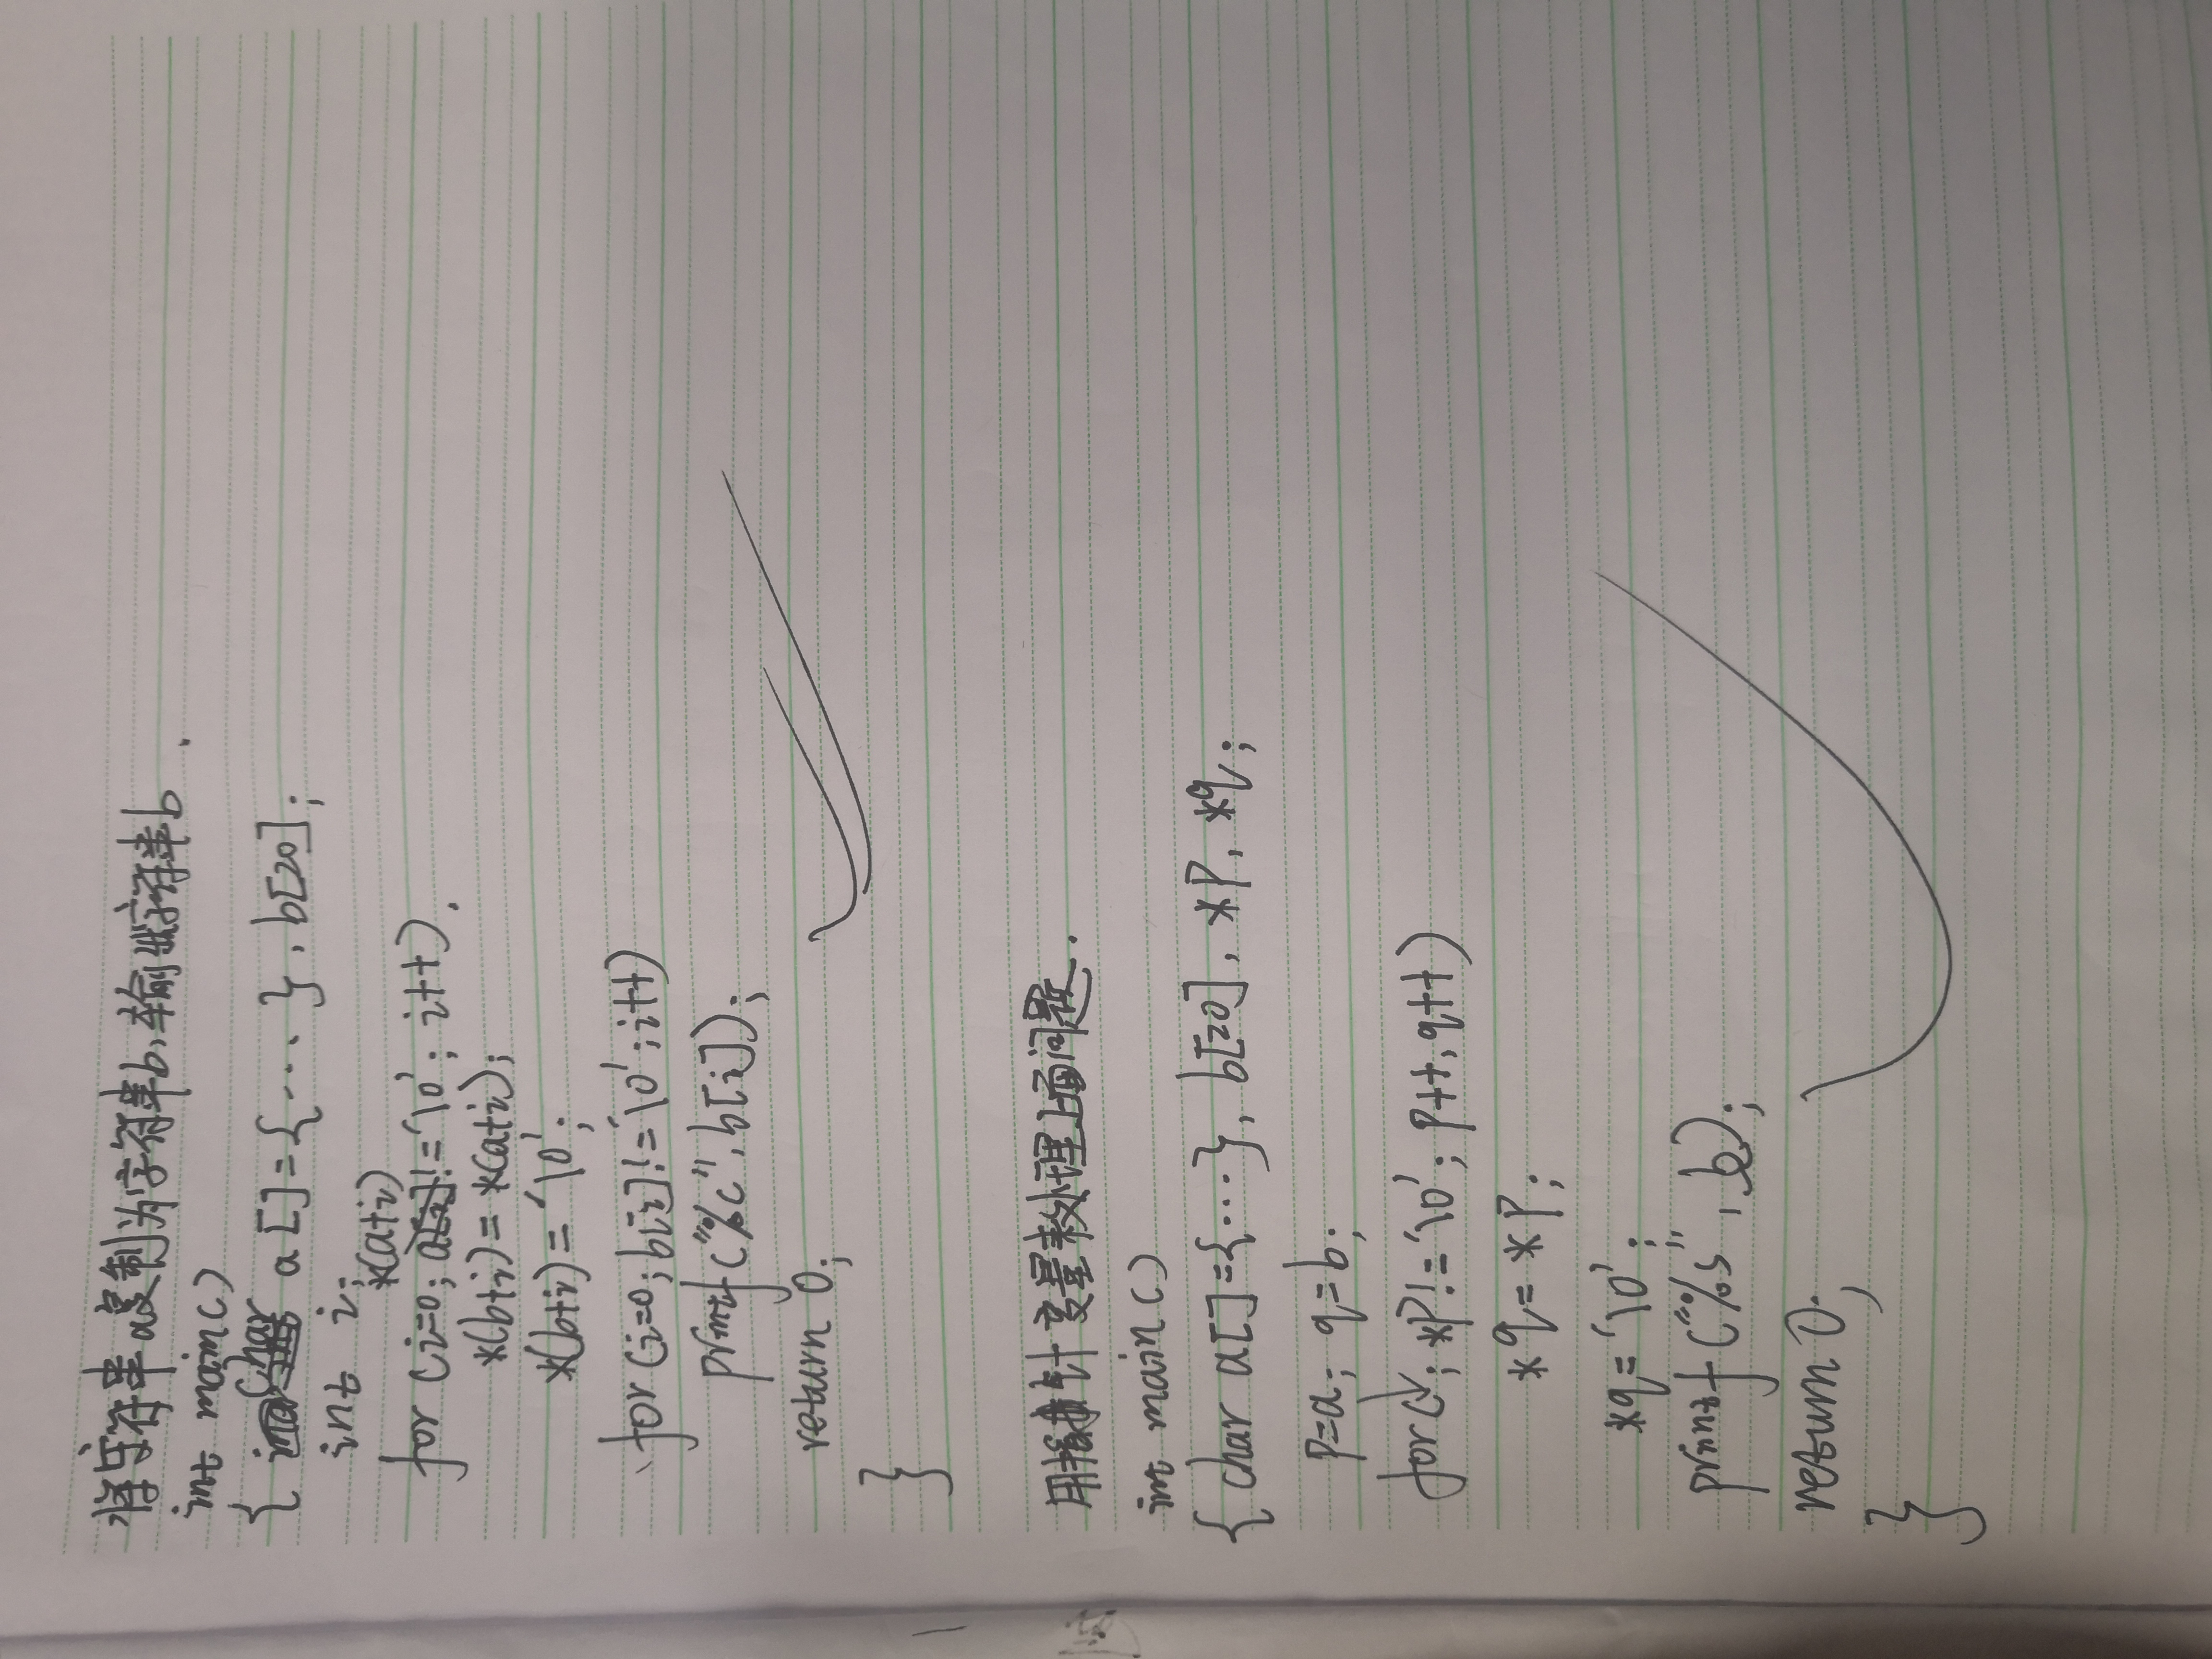 将字符串a复制为字符串b,输出字符串b.
int main()
{ char a[]={...},b[20];
int i;
for (i=0; *(a+i)!='\0'; i++)
*(b+i)= *(a+i);
*(b+i)='\0';
for (i=0;b[i]!='\0';i++)
printf("%c",b[i]);
return 0;
}
用指针变量来处理上面问题.
int main()
{ char a[]={...}, b[20], *p, *q;
p=a; q=b;
for( ; *p!='\0'; p++,q++)
*q= *p;
*q='\0';
printf("%s", b);
return 0;
}